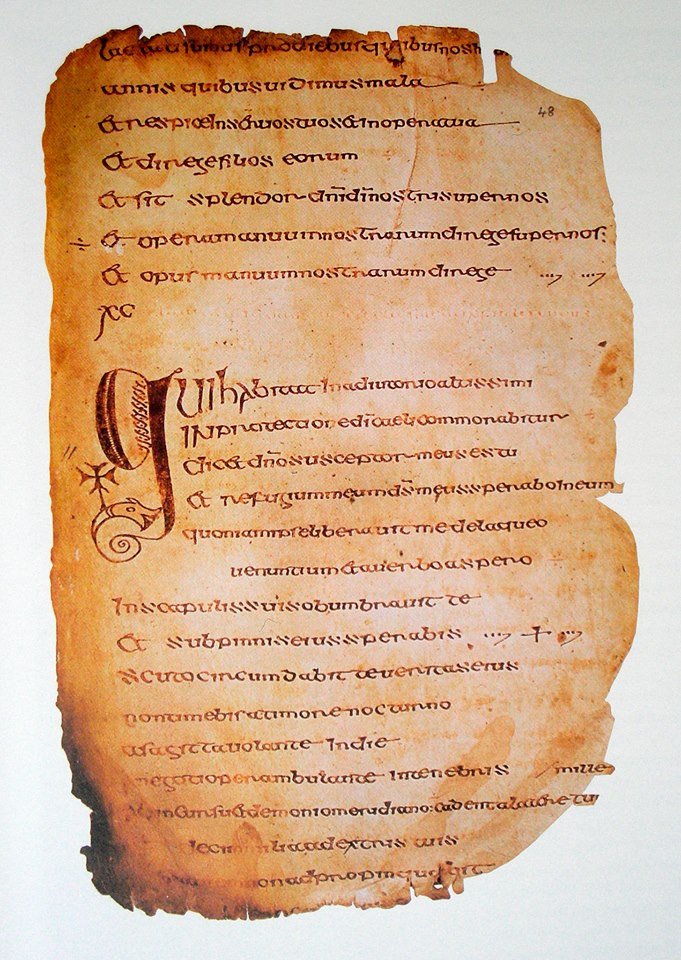 Laetati sumus pro diebus quibus nos h
annis quibus uidimus mala
Et respice in seruos tuos et in opera tua
48
Et dirige filios eorum
Et sit splendor dn̄i dī nostri super nos
÷ Et opera manuum nostrarum dirige super nos:
Et opus manuum nostrarum dirige
xc
Qui habitat in adiutorio altissimi
IN protectione dī caeli commorabitur
dicet dn̄o susceptor meus es tu
Et refugium meum ds̄ meus sperabo in eum
quoniam ipse liberauit me de laqueo
uenantium et a uerbo aspero
In scapulis suis obumbrauit te
Et sub pinnis eius sperabis
scuto circumdabit te ueritas eius
non timebis a timore nocturno
a sagitta uolante in die
negotio perambulante in tenebris / mille
incursu et demonio meridiano: cadent a latere tu
decim milia a dextris tuis
non adpropinquabit